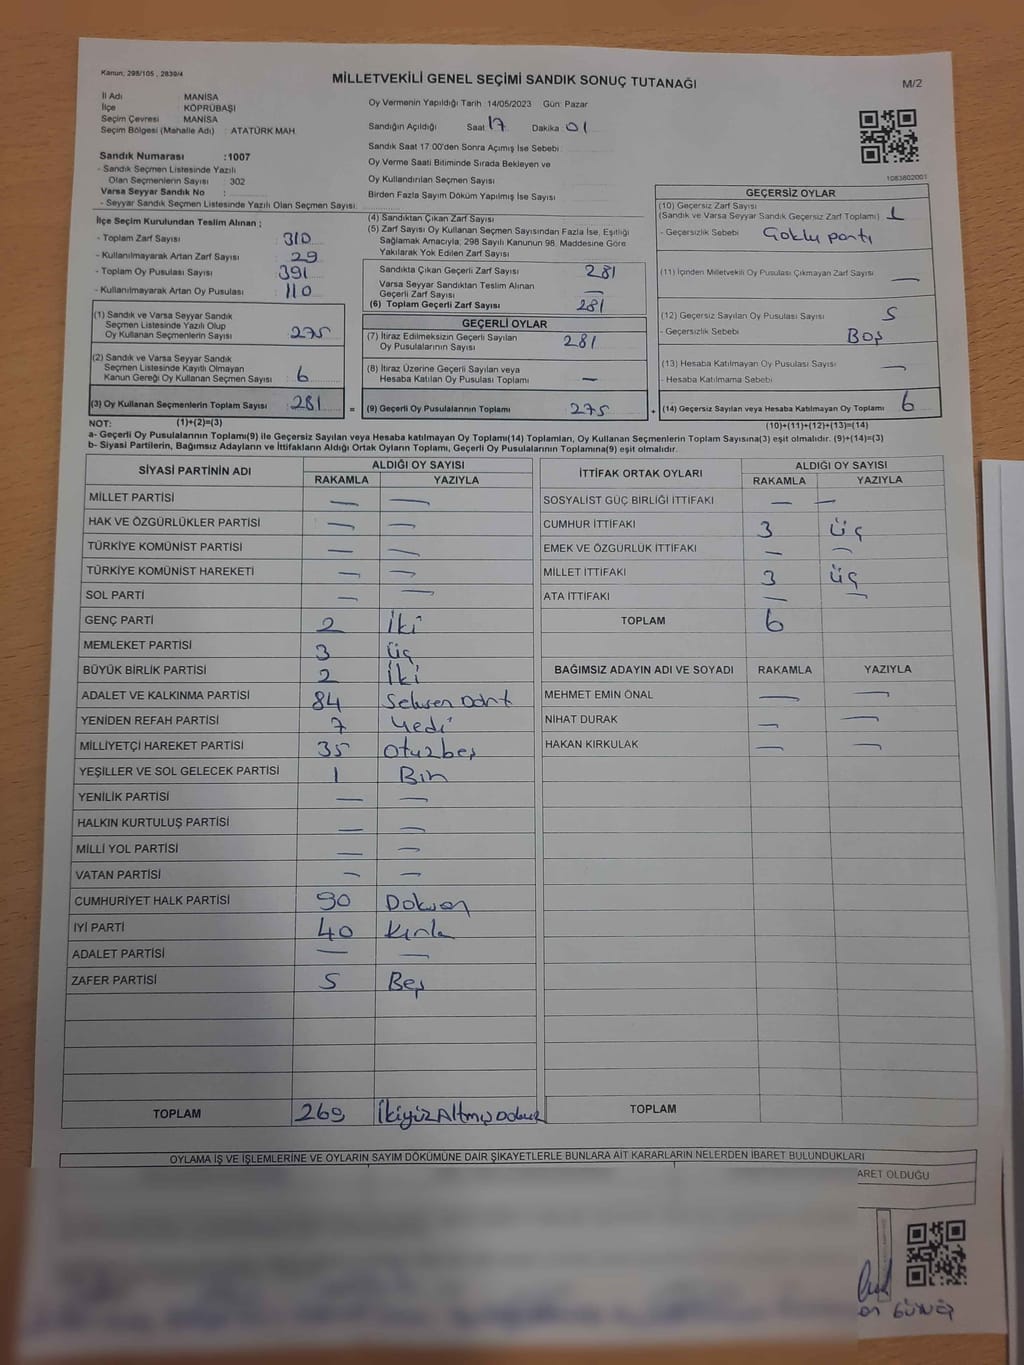 Kanun, 298/105 , 2839/4
MİLLETVEKİLİ GENEL SEÇİMİ SANDIK SONUÇ TUTANAĞI
M/2
İl Adı : MANİSA
İlçe : KÖPRÜBAŞI
Seçim Çevresi : MANİSA
Seçim Bölgesi (Mahalle Adı) : ATATÜRK MAH.
Oy Vermenin Yapıldığı Tarih 14/05/2023 Gün: Pazar
Sandığın Açıldığı Saat 17 Dakika 01
Sandık Saat 17:00'den Sonra Açımış İse Sebebi :
Oy Verme Saati Bitiminde Sırada Bekleyen ve
Oy Kullandırılan Seçmen Sayısı
Birden Fazla Sayım Döküm Yapılmış İse Sayısı
Sandık Numarası :1007
- Sandık Seçmen Listesinde Yazılı
Olan Seçmenlerin Sayısı : 302
Varsa Seyyar Sandık No :
- Seyyar Sandık Seçmen Listesinde Yazılı Olan Seçmen Sayısı:
1083602001
İlçe Seçim Kurulundan Teslim Alınan ;
- Toplam Zarf Sayısı : 310
- Kullanılmayarak Artan Zarf Sayısı : 29
- Toplam Oy Pusulası Sayısı : 391
- Kullanılmayarak Artan Oy Pusulası : 110
(1) Sandık ve Varsa Seyyar Sandık
Seçmen Listesinde Yazılı Olup
Oy Kullanan Seçmenlerin Sayısı 275
(2) Sandık ve Varsa Seyyar Sandık
Seçmen Listesinde Kayıtlı Olmayan
Kanun Gereği Oy Kullanan Seçmen Sayısı 6
(3) Oy Kullanan Seçmenlerin Toplam Sayısı 281
(4) Sandıktan Çıkan Zarf Sayısı
(5) Zarf Sayısı Oy Kullanan Seçmen Sayısından Fazla İse, Eşitliği
Sağlamak Amacıyla; 298 Sayılı Kanunun 98. Maddesine Göre
Yakılarak Yok Edilen Zarf Sayısı
Sandıkta Çıkan Geçerli Zarf Sayısı 281
Varsa Seyyar Sandıktan Teslim Alınan
Geçerli Zarf Sayısı —
(6) Toplam Geçerli Zarf Sayısı 281
GEÇERLİ OYLAR
(7) İtiraz Edilmeksizin Geçerli Sayılan
Oy Pusulalarının Sayısı 281
(8) İtiraz Üzerine Geçerli Sayılan veya
Hesaba Katılan Oy Pusulası Toplamı —
= (9) Geçerli Oy Pusulalarının Toplamı 275
GEÇERSİZ OYLAR
(10) Geçersiz Zarf Sayısı
(Sandık ve Varsa Seyyar Sandık Geçersiz Zarf Toplamı) 1
- Geçersizlik Sebebi Çoklu parti
(11) İçinden Milletvekili Oy Pusulası Çıkmayan Zarf Sayısı —
(12) Geçersiz Sayılan Oy Pusulası Sayısı 5
- Geçersizlik Sebebi Boş
(13) Hesaba Katılmayan Oy Pusulası Sayısı —
- Hesaba Katılmama Sebebi
+ (14) Geçersiz Sayılan veya Hesaba Katılmayan Oy Toplamı 6
NOT: (1)+(2)=(3)
(10)+(11)+(12)+(13)=(14)
a- Geçerli Oy Pusulalarının Toplamı(9) ile Geçersiz Sayılan veya Hesaba katılmayan Oy Toplamı(14) Toplamları, Oy Kullanan Seçmenlerin Toplam Sayısına(3) eşit olmalıdır. (9)+(14)=(3)
b- Siyasi Partilerin, Bağımsız Adayların ve İttifakların Aldığı Ortak Oyların Toplamı, Geçerli Oy Pusulalarının Toplamına(9) eşit olmalıdır.
SİYASİ PARTİNİN ADI ALDIĞI OY SAYISI
RAKAMLA YAZIYLA
MİLLET PARTİSİ — —
HAK VE ÖZGÜRLÜKLER PARTİSİ — —
TÜRKİYE KOMÜNİST PARTİSİ — —
TÜRKİYE KOMÜNİST HAREKETİ — —
SOL PARTİ — —
GENÇ PARTİ 2 İki
MEMLEKET PARTİSİ 3 Üç
BÜYÜK BİRLİK PARTİSİ 2 İki
ADALET VE KALKINMA PARTİSİ 84 Seksen Dört
YENİDEN REFAH PARTİSİ 7 Yedi
MİLLİYETÇİ HAREKET PARTİSİ 35 Otuzbeş
YEŞİLLER VE SOL GELECEK PARTİSİ 1 Bir
YENİLİK PARTİSİ — —
HALKIN KURTULUŞ PARTİSİ — —
MİLLİ YOL PARTİSİ — —
VATAN PARTİSİ — —
CUMHURİYET HALK PARTİSİ 90 Doksan
İYİ PARTİ 40 Kırk
ADALET PARTİSİ — —
ZAFER PARTİSİ 5 Beş
TOPLAM 269 İkiyüzAltmışDokuz
İTTİFAK ORTAK OYLARI ALDIĞI OY SAYISI
RAKAMLA YAZIYLA
SOSYALİST GÜÇ BİRLİĞİ İTTİFAKI — —
CUMHUR İTTİFAKI 3 Üç
EMEK VE ÖZGÜRLÜK İTTİFAKI — —
MİLLET İTTİFAKI 3 Üç
ATA İTTİFAKI — —
TOPLAM 6
BAĞIMSIZ ADAYIN ADI VE SOYADI RAKAMLA YAZIYLA
MEHMET EMİN ÖNAL — —
NİHAT DURAK — —
HAKAN KIRKULAK — —
TOPLAM
OYLAMA İŞ VE İŞLEMLERİNE VE OYLARIN SAYIM DÖKÜMÜNE DAİR ŞİKAYETLERLE BUNLARA AİT KARARLARIN NELERDEN İBARET BULUNDUKLARI
ARET OLDUĞU